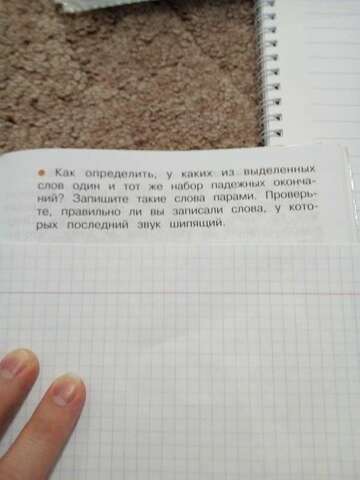 • Как определить, у каких из выделенных
слов один и тот же набор падежных оконча-
ний? Запишите такие слова парами. Проверь-
те, правильно ли вы записали слова, у кото-
рых последний звук шипящий.